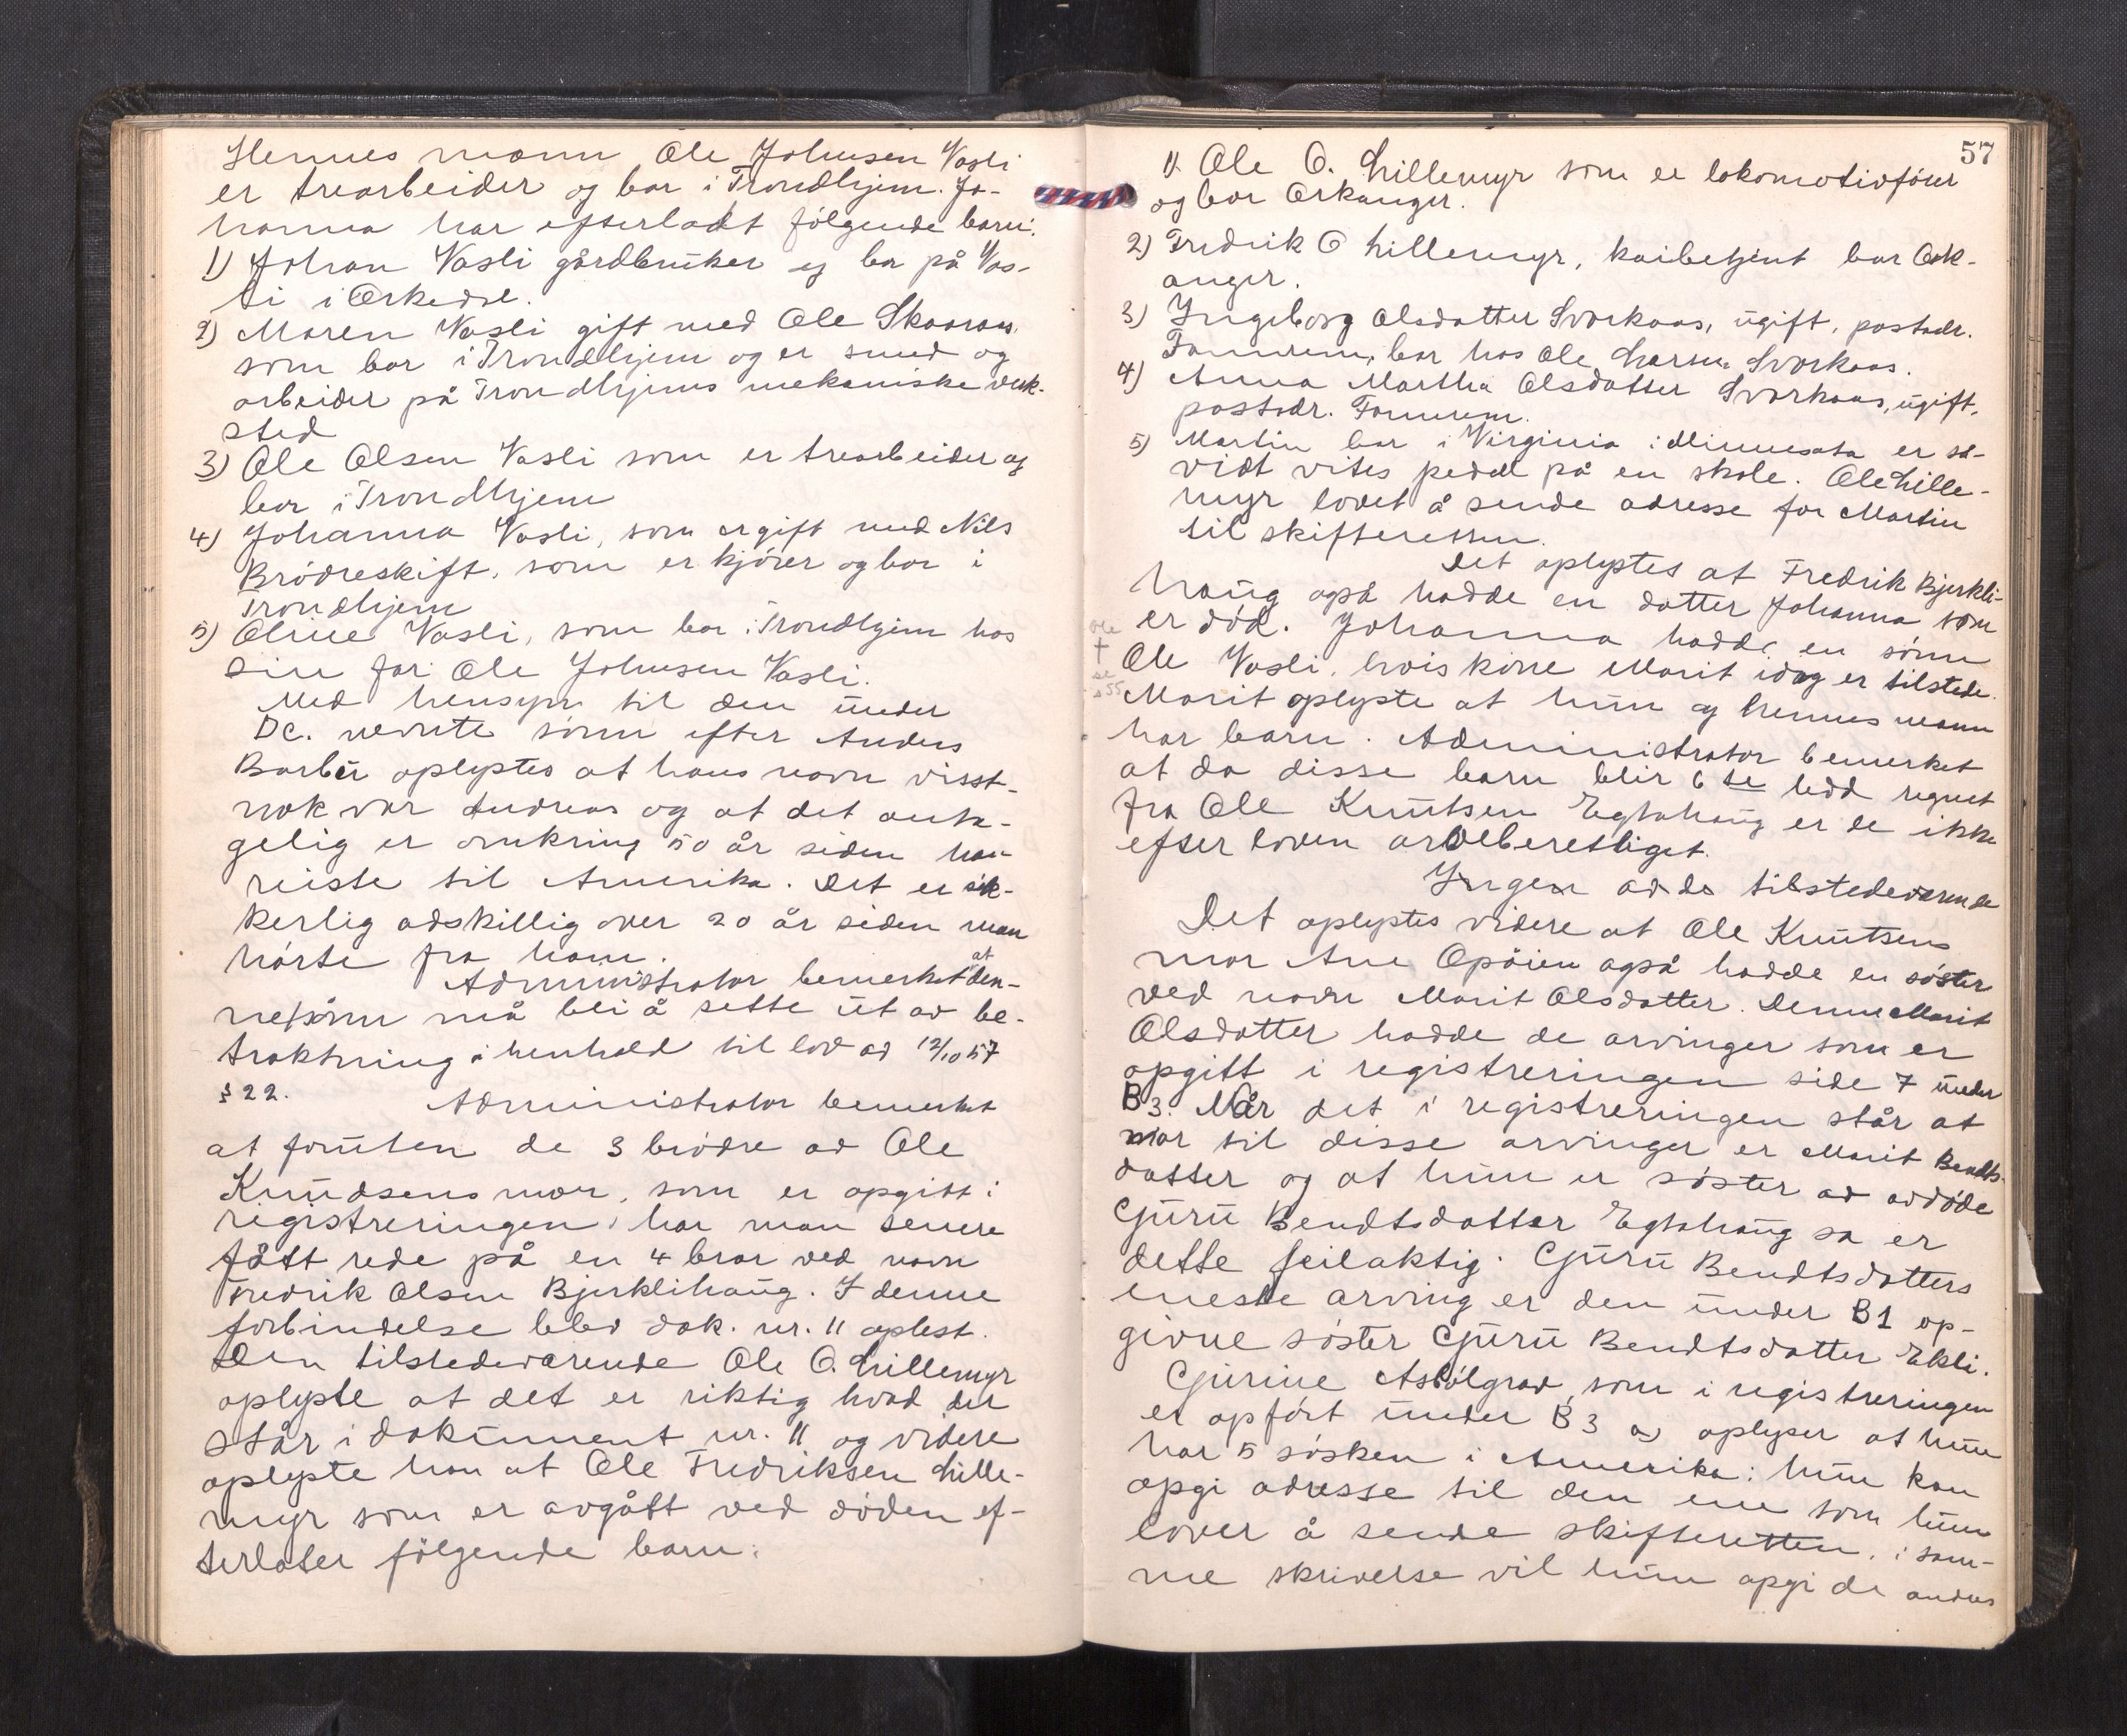 Hennes mann Ole Johnsen Vasli
er trearbeider og bor i Trondhjem. Jo-
hanna har efterladt følgende barn:
1) Johan Vasli gårdbruker og bor på Vas-
li i Orkedal.
2) Maren Vasli gift med Ole Skaaraas
som bor i Trondhjem og er smed og
arbeider på Trondhjems mekaniske verk-
sted
3) Ole Olsen Vasli som er trearbeider og
bor i Trondhjem
4) Johanna Vasli, som er gift med Nils
Brödreskift, som er kjörer og bor i
Trondhjem
5) Oline Vasli, som bor i Trondhjem hos
sin far Ole Johnsen Vasli.
Med hensyn til den under
Dc. nevnte sönn efter Anders
Barbu oplystes at hans navn visst-
nok var Andreas og at det anta-
gelig er omkring 50 år siden han
reiste til Amerika. Det er sik-
kerlig adskillig over 20 år siden man
hörte fra ham.
Administrator bemerket at den-
ne sönn må bli å sette ut av be-
traktning i henhold til lov av 12/10 57
§ 22.
Administrator bemerket
at foruten de 3 brödre av Ole
Knudsens mor, som er opgitt i
registreringen, har man senere
fått rede på en 4 bror ved navn
Fredrik Olsen Bjerklihaug. I denne
forbindelse blev dok. nr. 11 oplest.
Den tilstedeværende Ole O. Lillemyr
oplyste at det er riktig hvad der
står i dokument nr. 11 og videre
oplyste han at Ole Fredriksen Lille-
myr som er avgått ved döden ef-
terlater fölgende barn:
57
1). Ole O. Lillemyr som er lokomotivförer
og bor Orkanger.
2) Fredrik O Lillemyr, kaibetjent bor Ork-
anger.
3) Ingeborg Olsdatter Svorkaas, ugift, postadr.
Fannrem, bor hos Ole Larsen Svorkaas.
4) Anna Martha Olsdatter Svorkaas, ugift,
postadr. Fannrem.
5) Martin bor i Virginia i Minnesota er så-
vidt vites pedel på en skole. Ole Lille-
myr lovet å sende adresse for Martin
til skifteretten.
Det oplystes at Fredrik Bjerkli-
haug også hadde en datter Johanna som
er död. Johanna hadde en sönn
Ole
†
se
s 55
Ole Vasli, hvis kone Marit idag er tilstede.
Marit oplyste at hun og hennes mann
har barn. Administrator bemerket
at da disse barn blir 6 te ledd regnet
fra Ole Knutsen Egtahaug er de ikke
efter loven arveberettiget.
Ingen av de tilstedeværende
Det oplystes videre at Ole Knutsens
mor Ane Opöien også hadde en söster
ved navn Marit Olsdatter. Denne Marit
Olsdatter hadde de arvinger som er
opgitt i registreringen side 7 under
B3. Når det i registreringen står at
mor til disse arvinger er Marit Bendts-
datter og at hun er söster av avdöde
Guru Bendtsdatter Egtahaug så er
dette feilaktig. Guru Bendtsdatters
eneste arving er den under B1 op-
givne söster Guru Bendtsdatter Ekli.
Gurine Asbölgrav, som i registreringen
er opfört under B3 a) oplyser at hun
har 5 sösken i Amerika; hun kan
opgi adresse til den ene som hun
lover å sende skifteretten, i sam-
me skrivelse vil hun opgi de andres